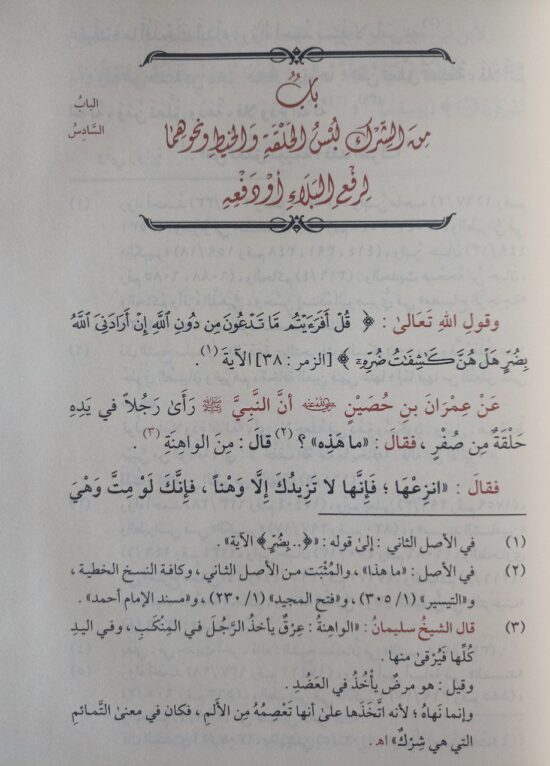 الباب
السَّادِسُ
بَابٌ
مِنَ الشِّرْكِ لُبْسُ الْحَلْقَةِ وَالْخَيْطِ وَنَحْوِهِمَا
لِرَفْعِ الْبَلَاءِ أَوْ دَفْعِهِ
وقولِ اللهِ تَعَالىٰ : ﴿ قُلْ أَفَرَءَيْتُم مَّا تَدْعُونَ مِن دُونِ ٱللَّهِ إِنْ أَرَادَنِىَ ٱللَّهُ
بِضُرٍّ هَلْ هُنَّ كَـٰشِفَـٰتُ ضُرِّهِۦٓ ﴾ [الزمر : ٣٨] الآيةَ (١) .
عَنْ عِمْرَانَ بنِ حُصَيْنٍ رضي الله عنه أنَّ النَّبِيَّ ﷺ رَأىٰ رَجُلاً في يَدِهِ
حَلْقَةٌ مِن صُفْرٍ ، فقال : «ما هَذِه» ؟ (٢) قالَ : مِنَ الواهِنَةِ (٣) .
فقالَ : «انزِعْهَا ؛ فَإنَّها لا تَزيدُكَ إلَّا وَهْناً ، فإنَّكَ لَوْ مِتَّ وَهْيَ
(١) في الأصل الثاني : إلىٰ قوله : «﴿.. بِضُرٍّ﴾ الآية» .
(٢) في الأصل : «ما هذا» ، والمُثبَت من الأصل الثاني ، وكافة النسخ الخطية ،
و«التيسير» (١/ ٣٠٥) ، و«فتح المجيد» (١/ ٢٣٠) ، و«مسند الإمام أحمد» .
(٣) قال الشيخُ سليمانُ : «الواهِنةُ : عِرْقٌ يأخذُ الرَّجُلَ في المِنْكَبِ ، وفي اليدِ
كُلِّها فَيُرْقىٰ منها .
وقيل : هو مرضٌ يأخُذُ في العَضُدِ .
وإنما نَهاهُ ؛ لأنه اتَّخَذَها علىٰ أنها تَعْصِمُهُ مِن الألَمِ ، فكان في معنىٰ التَّمائمِ
التي هي شِرْكٌ» اهـ .